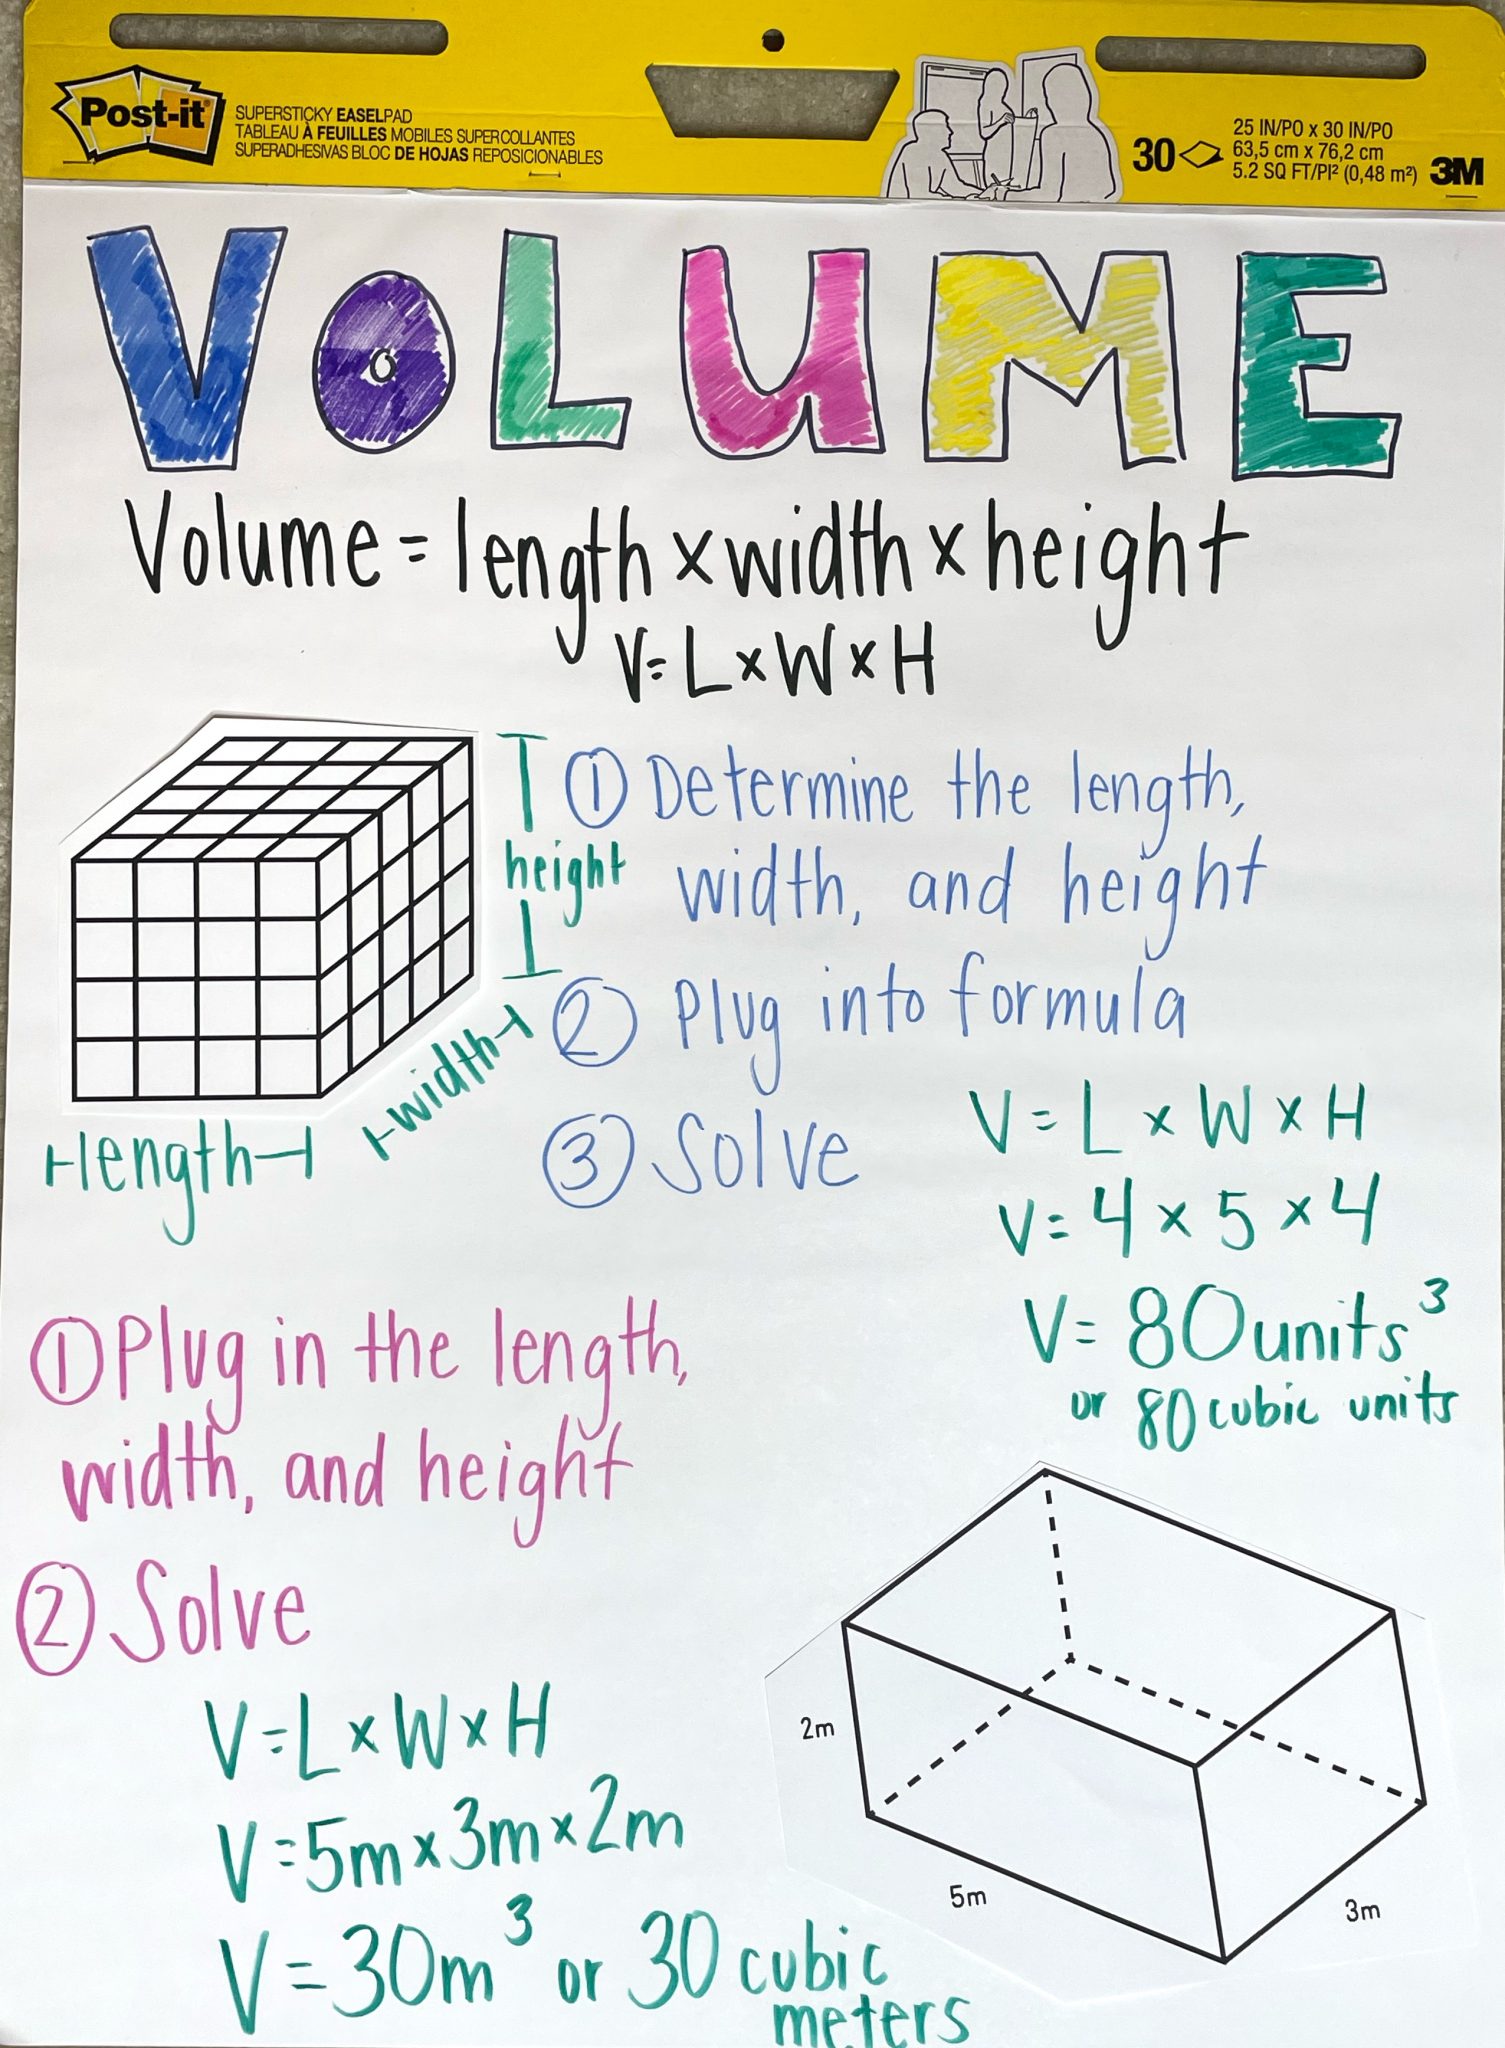 Post-it
SUPERSTICKY EASELPAD
TABLEAU À FEUILLES MOBILES SUPERCOLLANTES
SUPERADHESIVAS BLOC DE HOJAS REPOSICIONABLES
30
25 IN/PO x 30 IN/PO
63,5 cm x 76,2 cm
5.2 SQ FT/PI² (0,48 m²)
3M
VOLUME
Volume = length x width x height
V= L x W x H
① Determine the length,
width, and height
② Plug into formula
③ Solve
height
width
length
V = L x W x H
V = 4 x 5 x 4
V = 80 units³
or 80 cubic units
① Plug in the length,
width, and height
② Solve
V = L x W x H
V = 5m x 3m x 2m
V = 30m³ or 30 cubic
meters
2m
5m
3m